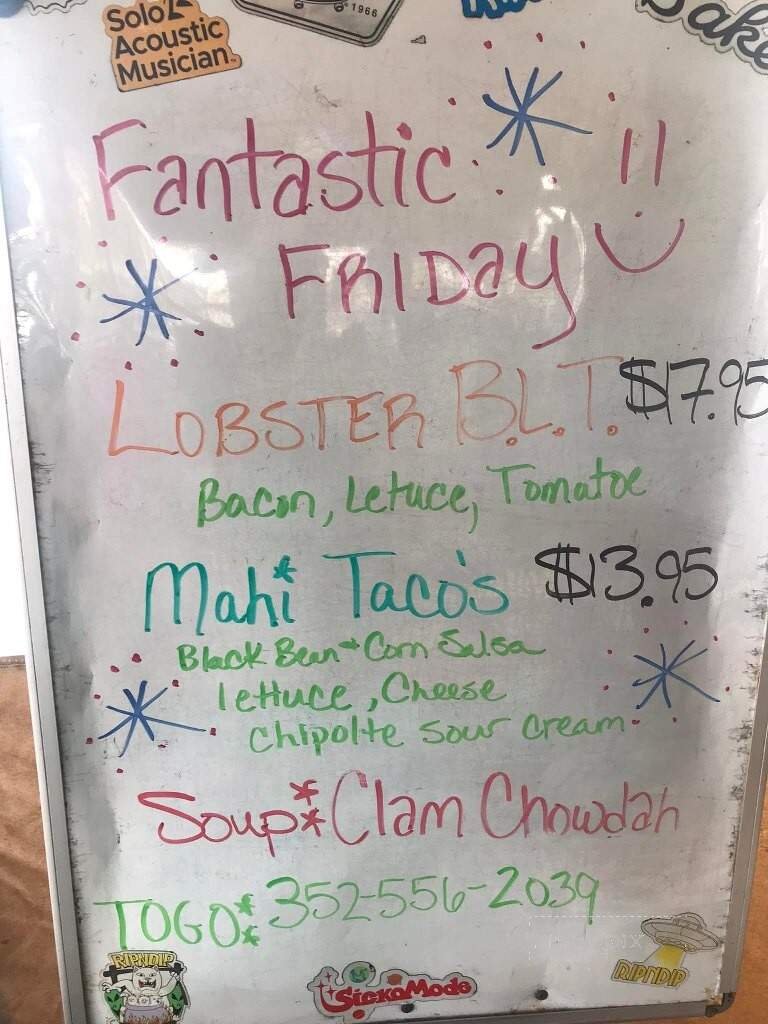 Solo
Acoustic
Musician
1966
Fantastic !!
FRIDay
LOBSTER B.L.T. $17.95
Bacon, Letuce, Tomatoe
Mahi Taco's $13.95
Black Bean + Corn Salsa
lettuce, Cheese
Chipolte Sour Cream
Soup: Clam Chowdah
TOGO: 352-556-2039
RIPNDIP
SickoMode
RIPNDIP